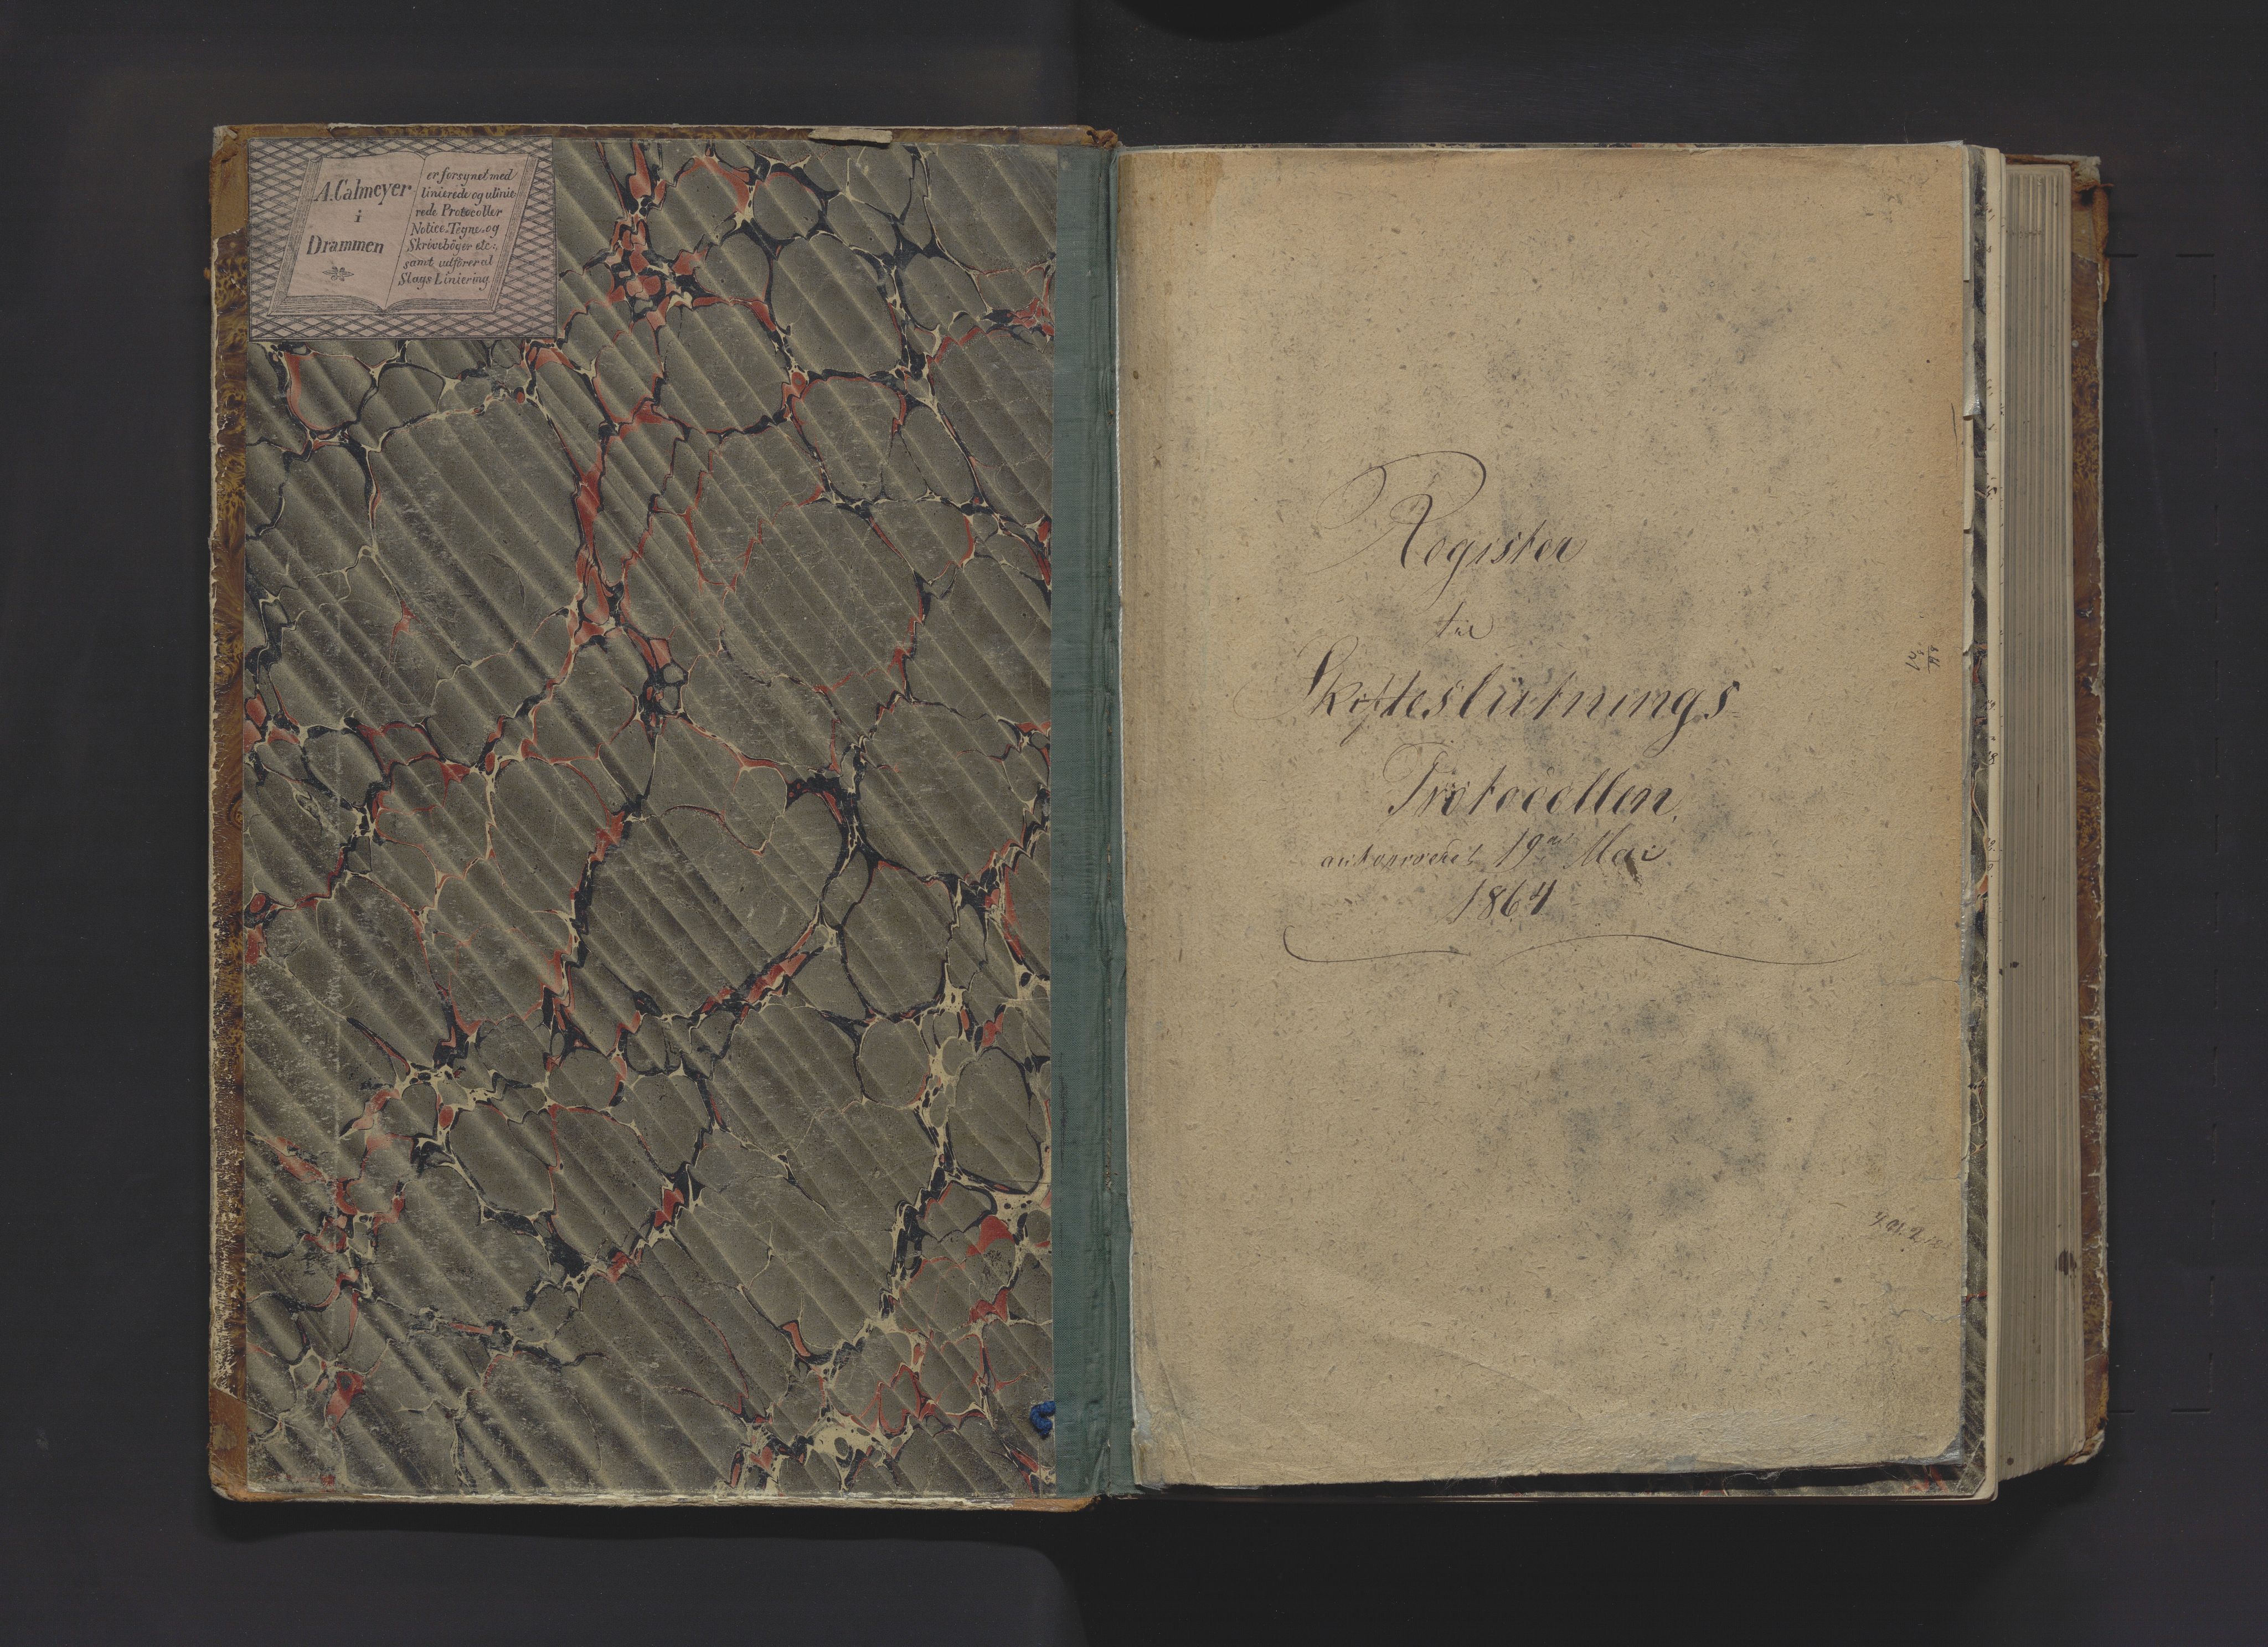 A. Calmeyer
i
Drammen
er forsynet med
linierede og ulinie
rede Protocoller
Notice, Tegne, og
Skriveböger etc:,
samt udförer al
Slags Liniering
Register
til
Skifteslutnings
Protocollen,
autoriseret 19de Mai
1864